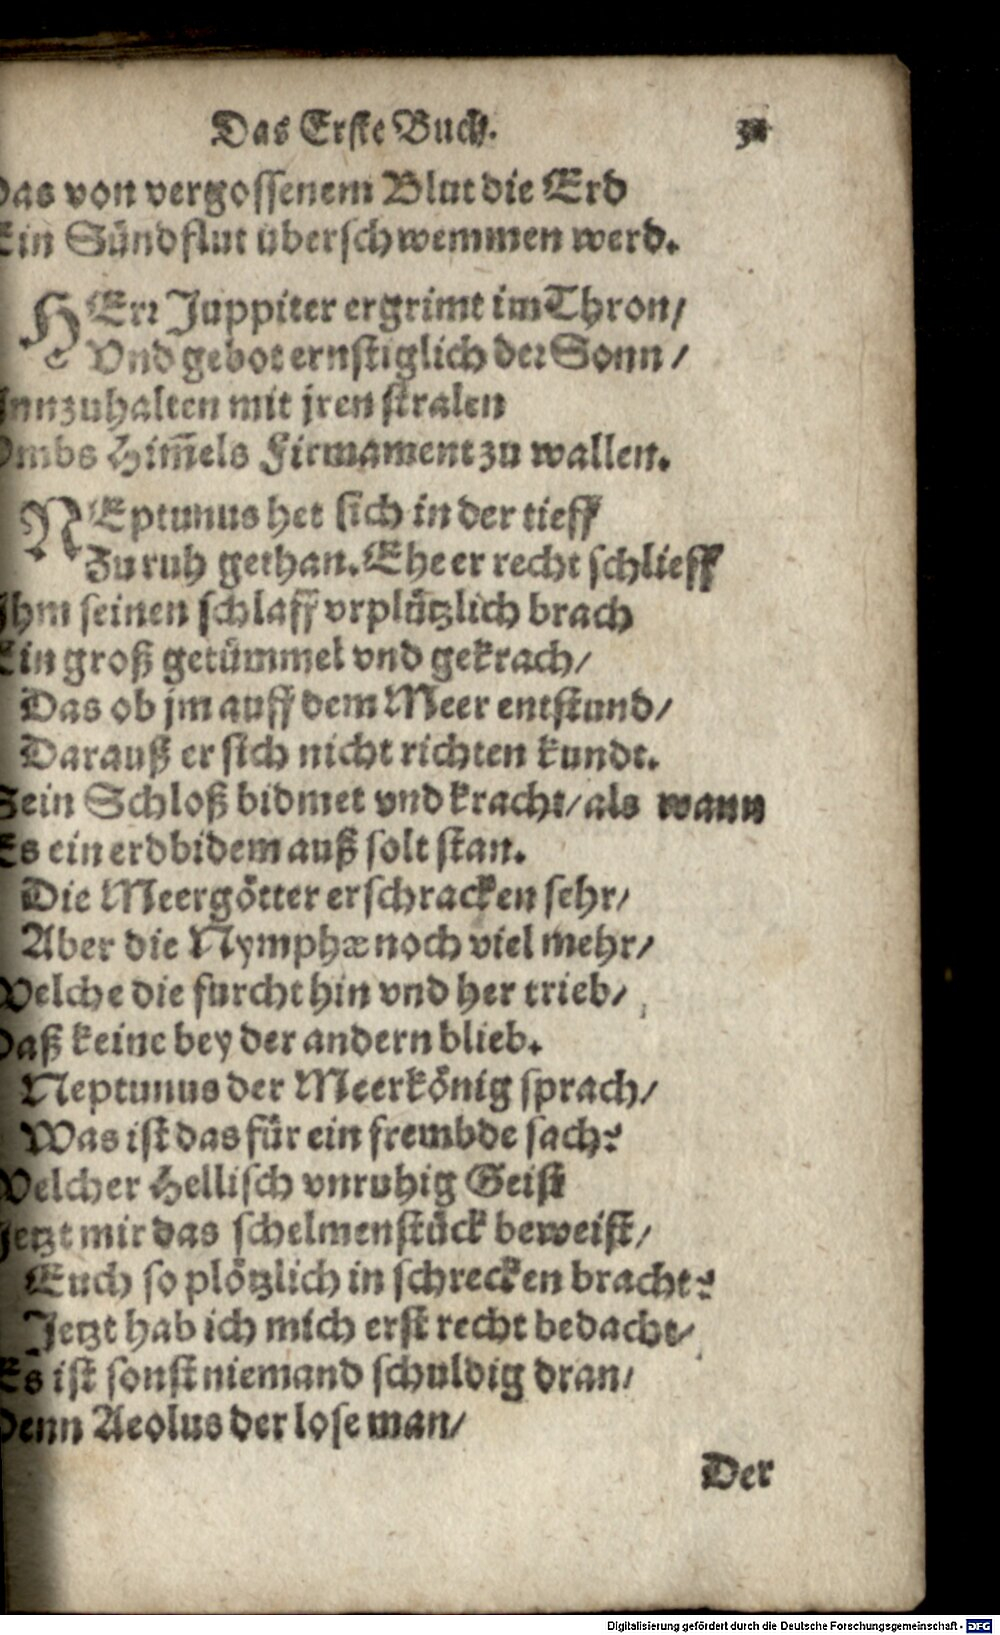 Das Erste Buch.
Das von vergossenem Blut die Erd
Ein Sündflut überschwemmen werd.
HErr Juppiter ergrimt im Thron/
Vnd gebot ernstiglich der Sonn/
Innzuhalten mit jren stralen
Vmbs Him̄els Firmament zu wallen.
NEptunus het sich in der tieff
Zu ruh gethan. Ehe er recht schlieff
Ihm seinen schlaff vrplützlich brach
Ein groß getümmel vnd gekrach/
Das ob jm auff dem Meer entstund/
Darauß er sich nicht richten kundt.
Sein Schloß bidmet vnd kracht/als wann
Es ein erdbidem auß solt stan.
Die Meergötter erschracken sehr/
Aber die Nymphæ noch viel mehr/
Welche die furcht hin vnd her trieb/
Daß keine bey der andern blieb.
Neptunus der Meerkönig sprach/
Was ist das für ein frembde sach?
Welcher Hellisch vnruhig Geist
Jetzt mir das schelmenstück beweist/
Euch so plötzlich in schrecken bracht?
Jetzt hab ich mich erst recht bedacht/
Es ist sonst niemand schuldig dran/
Denn Aeolus der lose man/
Der
Digitalisierung gefördert durch die Deutsche Forschungsgemeinschaft - DFG